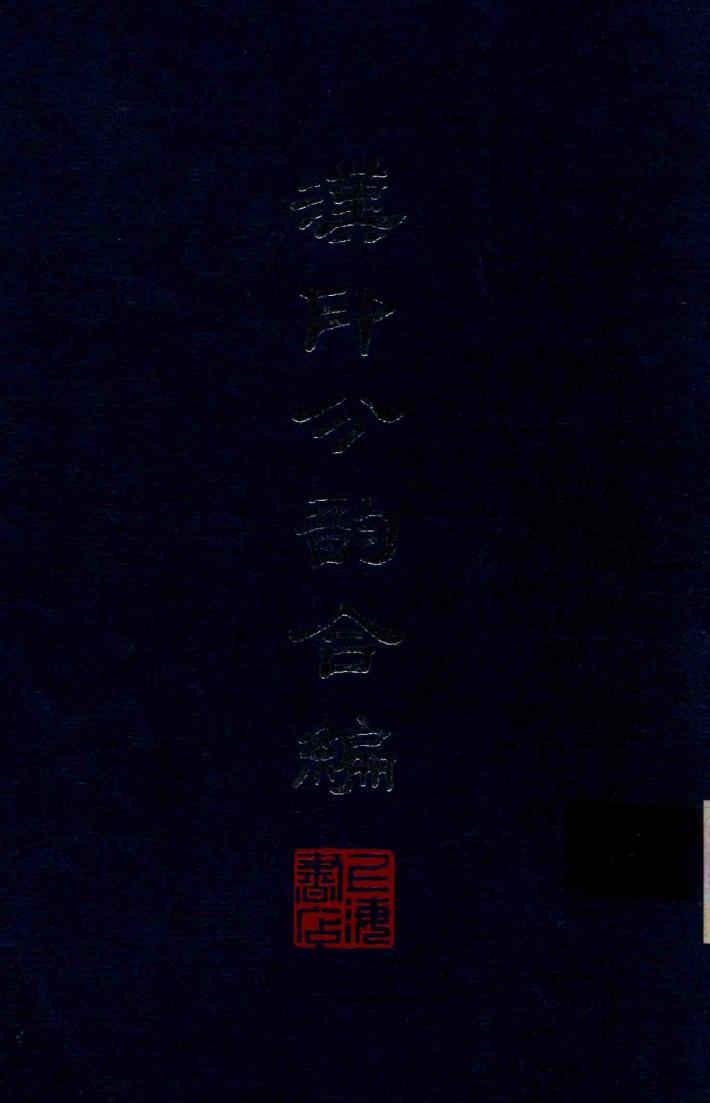 漢印分韵合編
上海書店